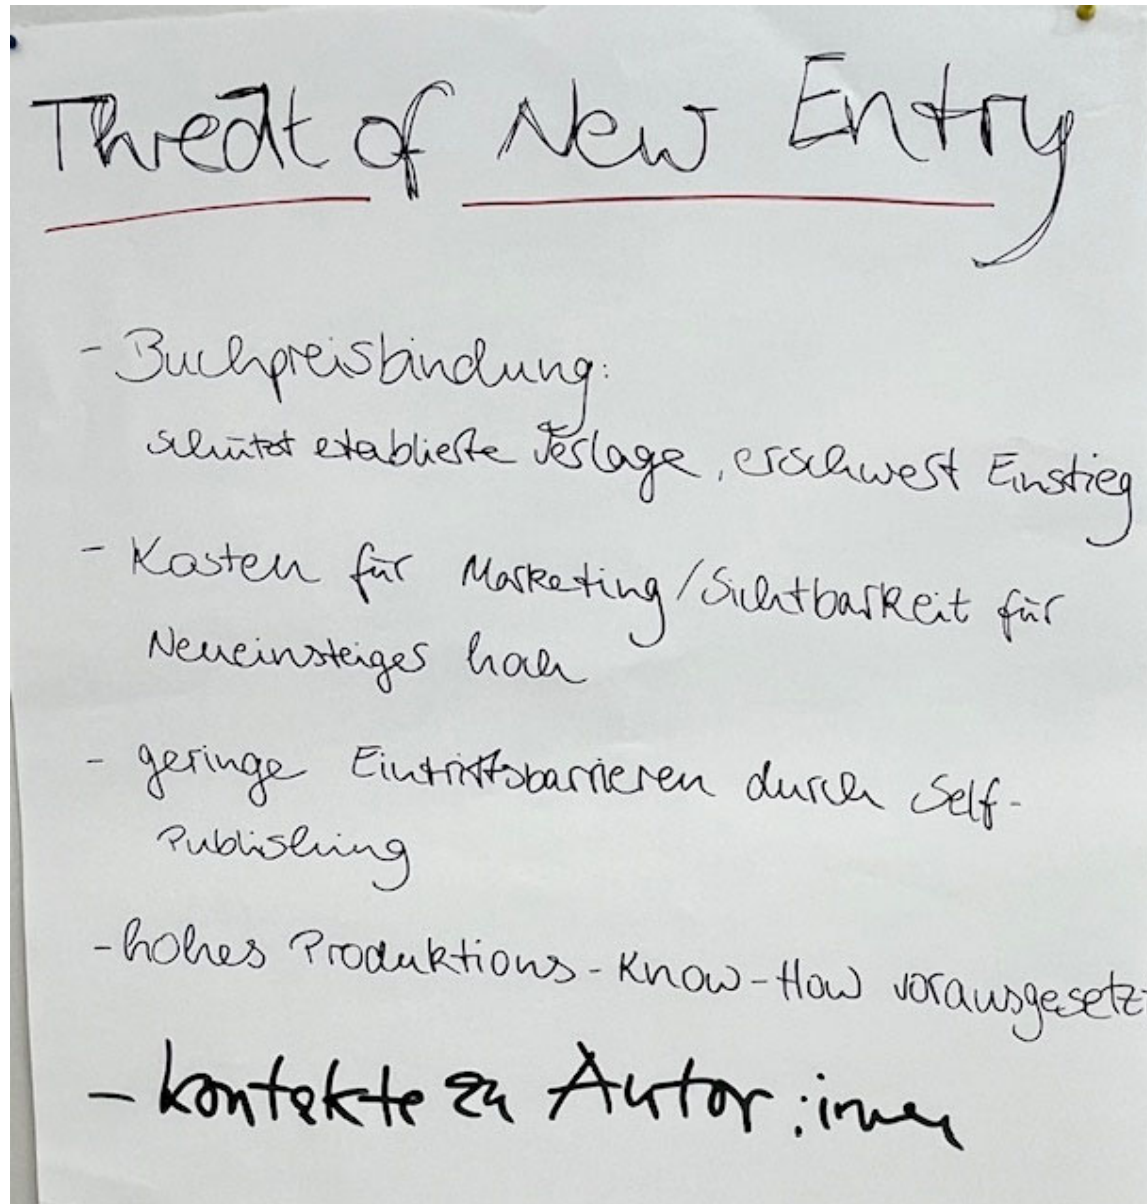 Threat of New Entry
- Buchpreisbindung:
schützt etablierte Verlage, erschwert Einstieg
- Kosten für Marketing/Sichtbarkeit für
Neueinsteiger hoch
- geringe Eintrittsbarrieren durch Self-
Publishing
- hohes Produktions-Know-How vorausgesetzt
- Kontakte zu Autor:innen